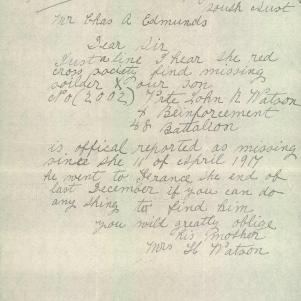 South Aust
Mr Chas A Edmunds
Dear Sir
Just a line I hear the red
cross society find missing
soulder & our son
No (2002) Prte John R Watson
4 Reinforcement
48 Battalion
is offical reported as missing
since the 11 of April 1917
he went to France the end of
last December if you can do
any thing to find him
you will greatly oblige
his Mother
Mrs H Watson